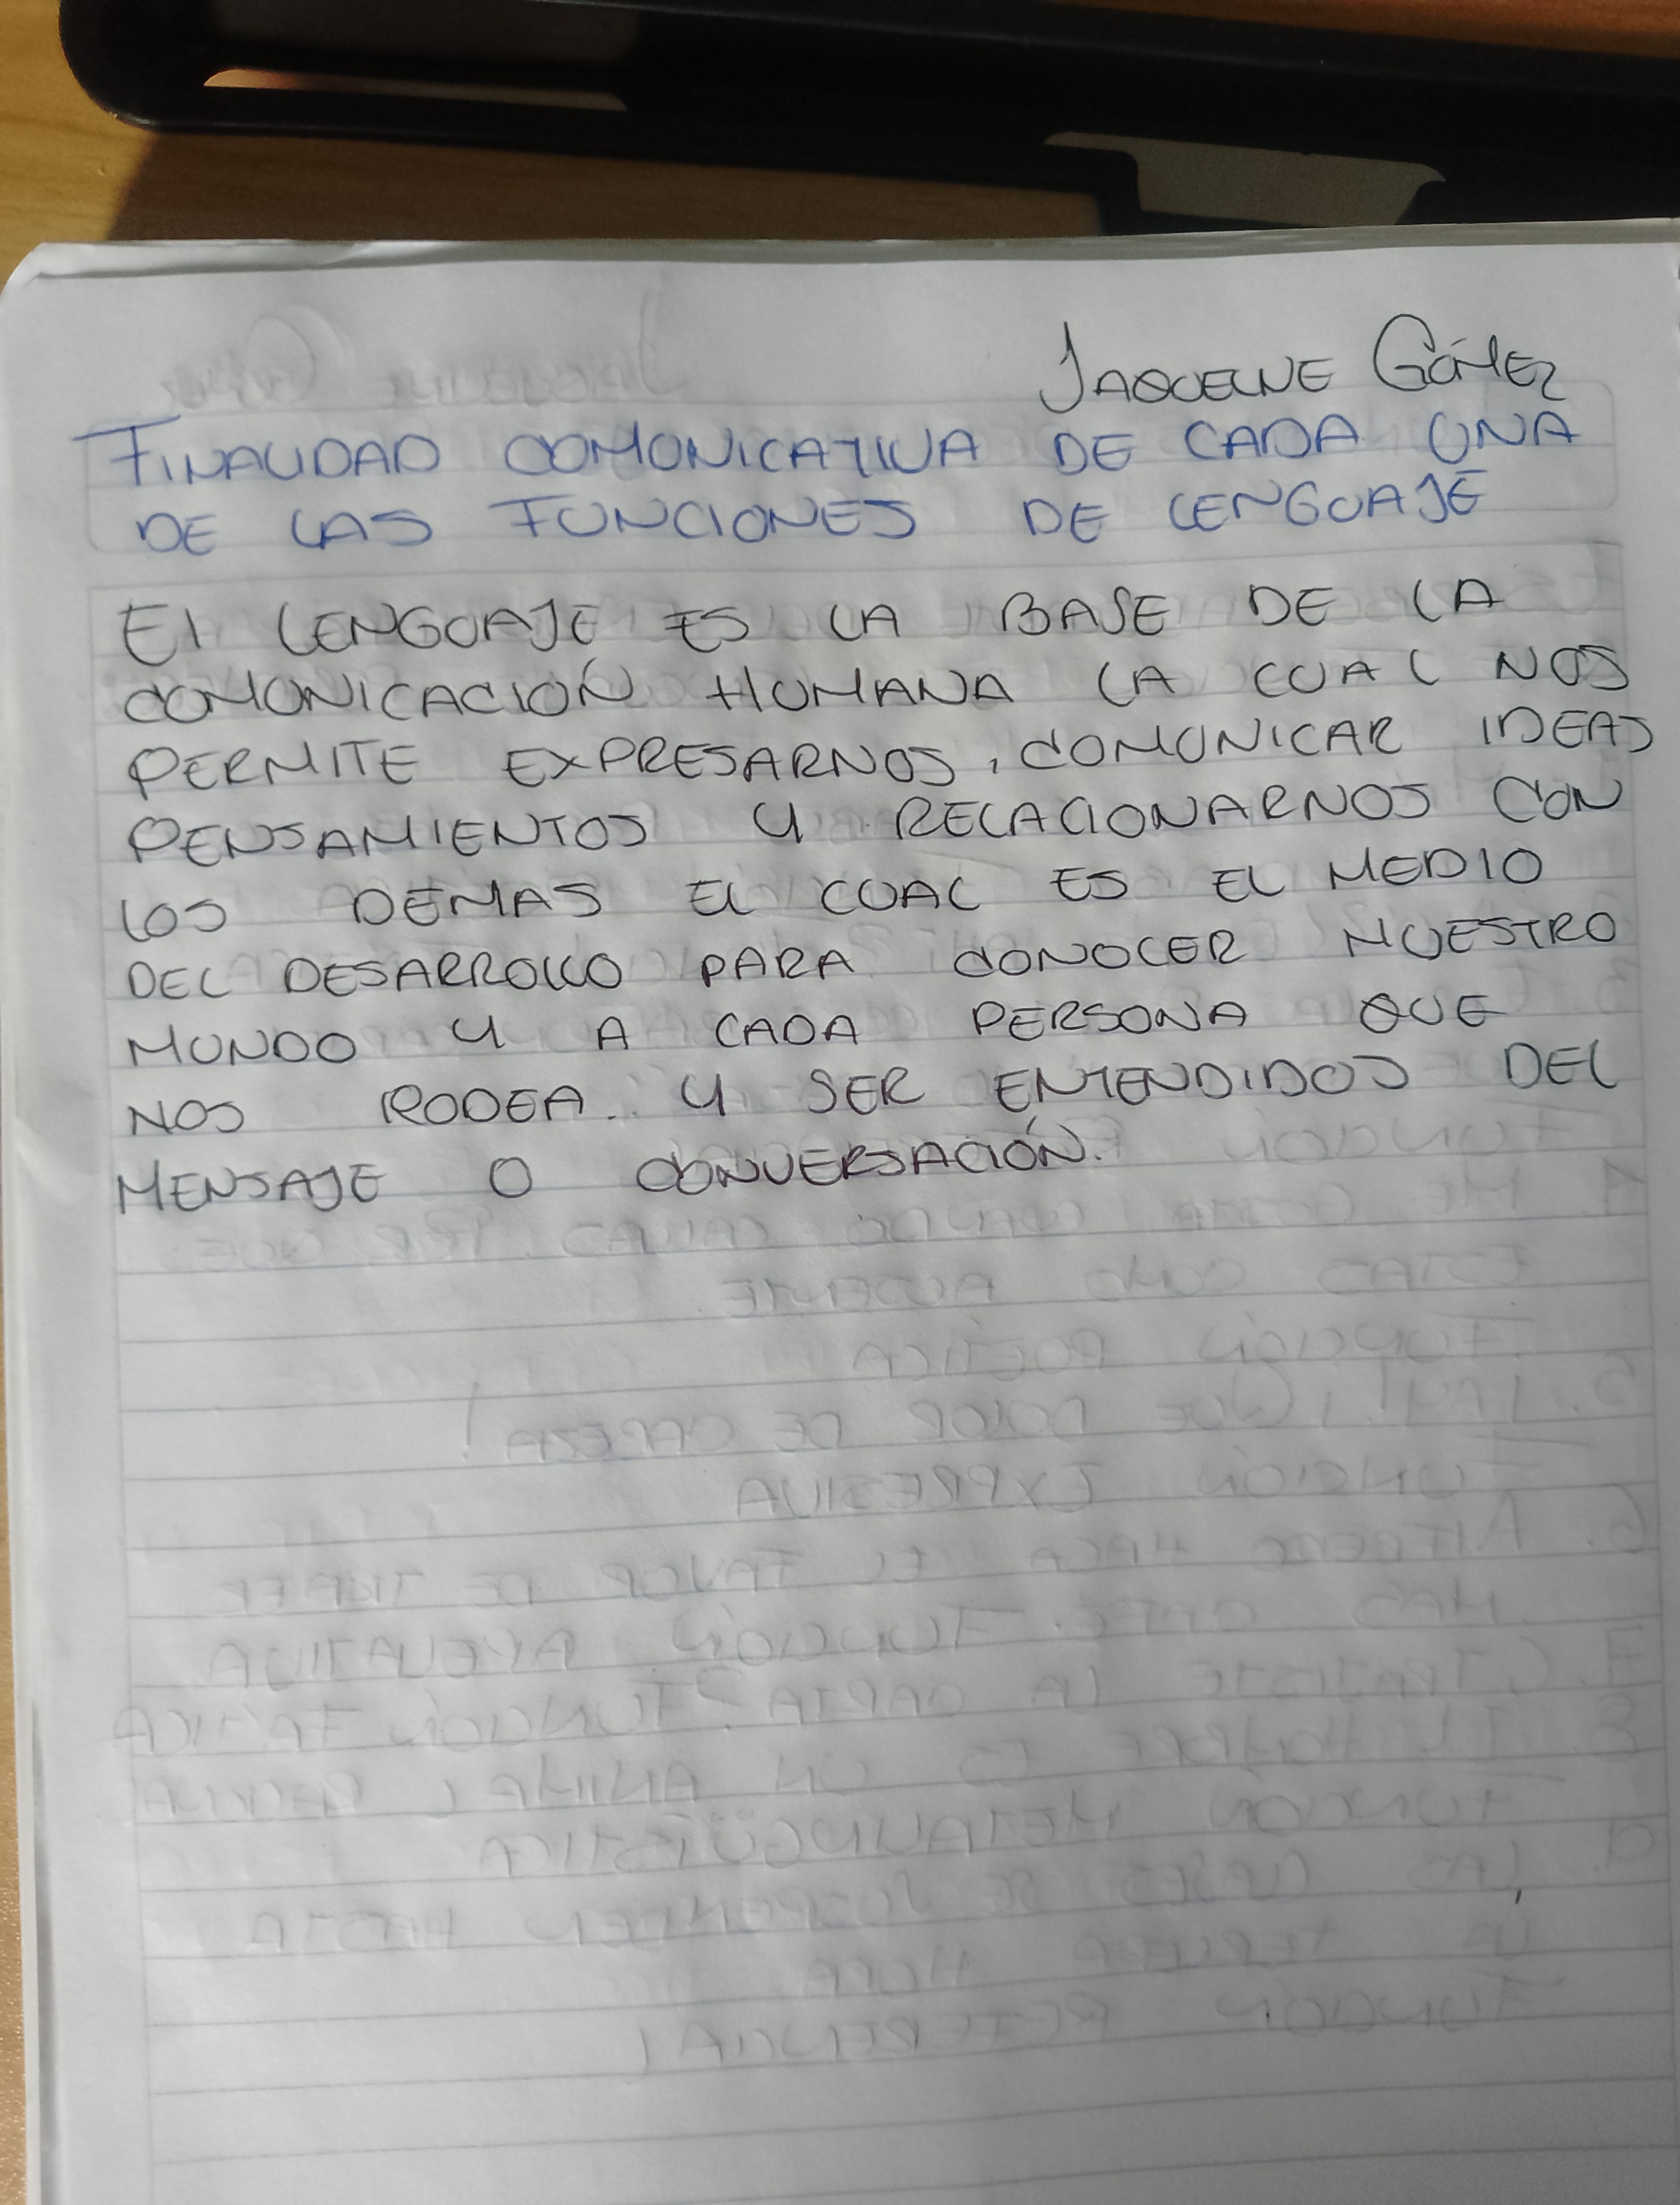 JAQUELINE GÓMEZ
FINALIDAD COMUNICATIVA DE CADA UNA
DE LAS FUNCIONES DE LENGUAJE
El LENGUAJE ES LA BASE DE LA
COMUNICACIÓN HUMANA LA CUAL NOS
PERMITE EXPRESARNOS, COMUNICAR IDEAS
PENSAMIENTOS Y RELACIONARNOS CON
LOS DEMAS EL CUAL ES EL MEDIO
DEL DESARROLLO PARA CONOCER NUESTRO
MUNDO Y A CADA PERSONA QUE
NOS RODEA. Y SER ENTENDIDOS DEL
MENSAJE O CONVERSACIÓN.